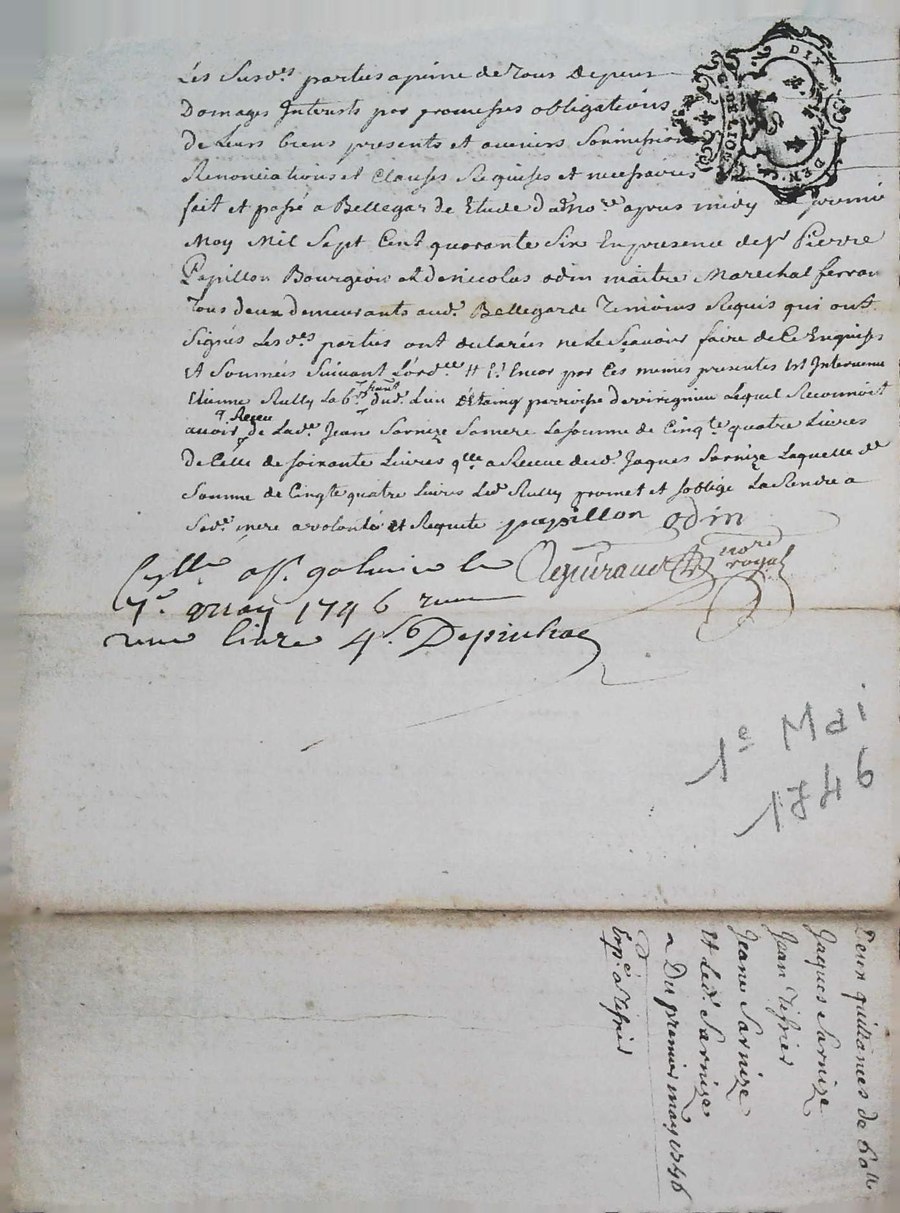 Les Susd.es parties a peine de tous Depens
Domages Interests par promesses obligations
de Leurs biens presents et avenirs Soumissions
Renonciations et Clauses Requises et necessaires
fait et passé a Bellegarde Etude dud. no.re apres midy le premier
May Mil Sept Cent quarante Six En presence de Sr Pierre
Papillon Bourgeois et de nicolas odin maitre Marechal ferran
tous deux demeurants aud. Bellegarde temoins Requis qui ont
Signés Les d.es parties ont declarées ne Le Sçavoir faire de Ce Enquises
et Sommées Suivant L'ord.ce Et Encor par Ces memes presentes Est Intervenu
Etienne Rully dud. Lieu parroisse de virignieu Lequel Reconnoit
avoir Receu de Lad.e Jeane Sarnize Samere La somme de Cinq.te quatre Livres
de Celle de soixante Livres q.lle a Receue dud. Jaques Sarnize Laquelle d.e
Somme de Cinq.te quatre Livres Led. Rully promet et soblige La Rendre a
Sad. mere a volonté et Requete papillon odin
no.re royal
le
7.e may 1746
une livre 4 s.
DIX
DEN.
1e Mai
1746
Deux quittances de 60 ll
Jaques Sarnize
Jean tissier
Jeane Sarnize
Et Led. Sarnize
Du premier may 1746
Exp.e a tissier